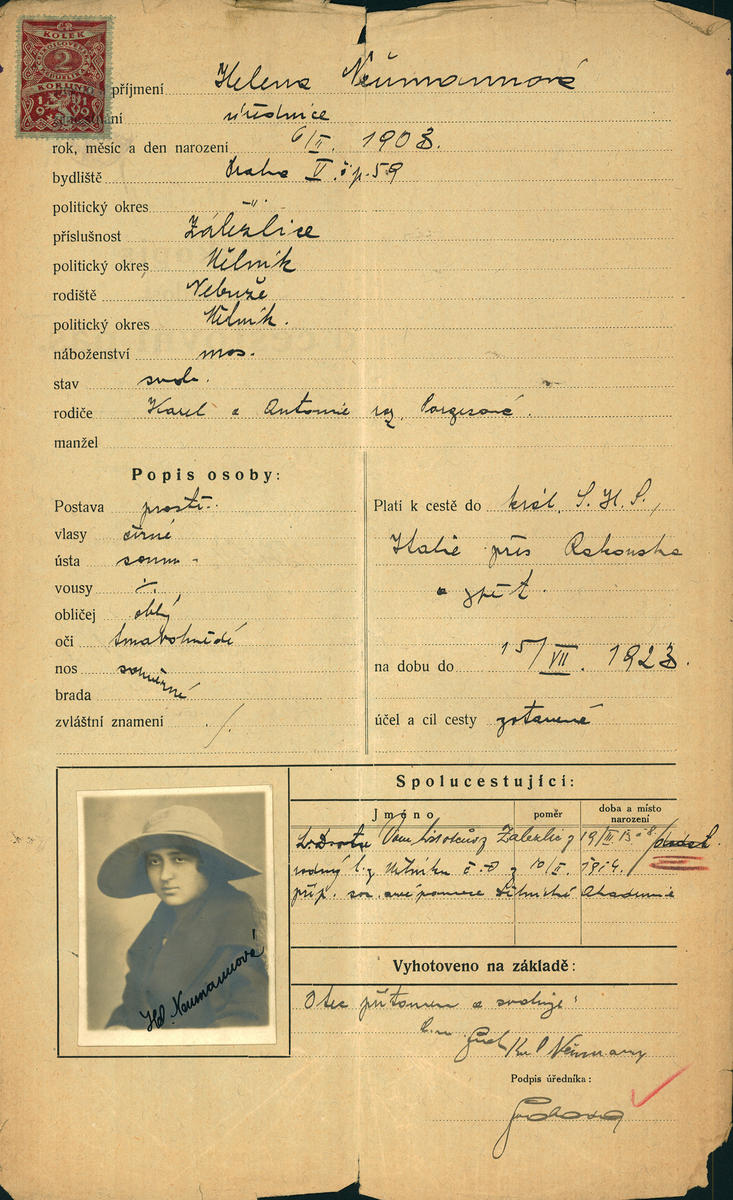 ČR
KOLEK
2
KORUNY
1919
příjmení Helena Neumannová
úřednice
rok, měsíc a den narození 6/II. 1903.
bydliště Praha V. č.p. 59
politický okres -"-
příslušnost Zálezlice
politický okres Mělník
rodiště Nebuže
politický okres Mělník.
náboženství mos.
stav svob.
rodiče Karel a Antonie roz. Porgesová.
manžel
Popis osoby:
Postava prostř.
vlasy černé
ústa soum.
vousy ·/.
obličej oblý
oči tmavohnědé
nos souměrné
brada
zvláštní znamení ./.
Platí k cestě do král. S. H. S.,
Italie přes Rakousko
a zpět.
na dobu do 15/VII. 1923.
účel a cíl cesty zotavené
Spolucestující:
Jméno poměr doba a místo narození
Zálezlic z 19/III
rodný l. z Mělníku z 10/II. 1914.
příp. Akademie
Vyhotoveno na základě:
Otec přítomen a svoluje:
Neumann
Podpis úředníka:
Hel. Neumannová